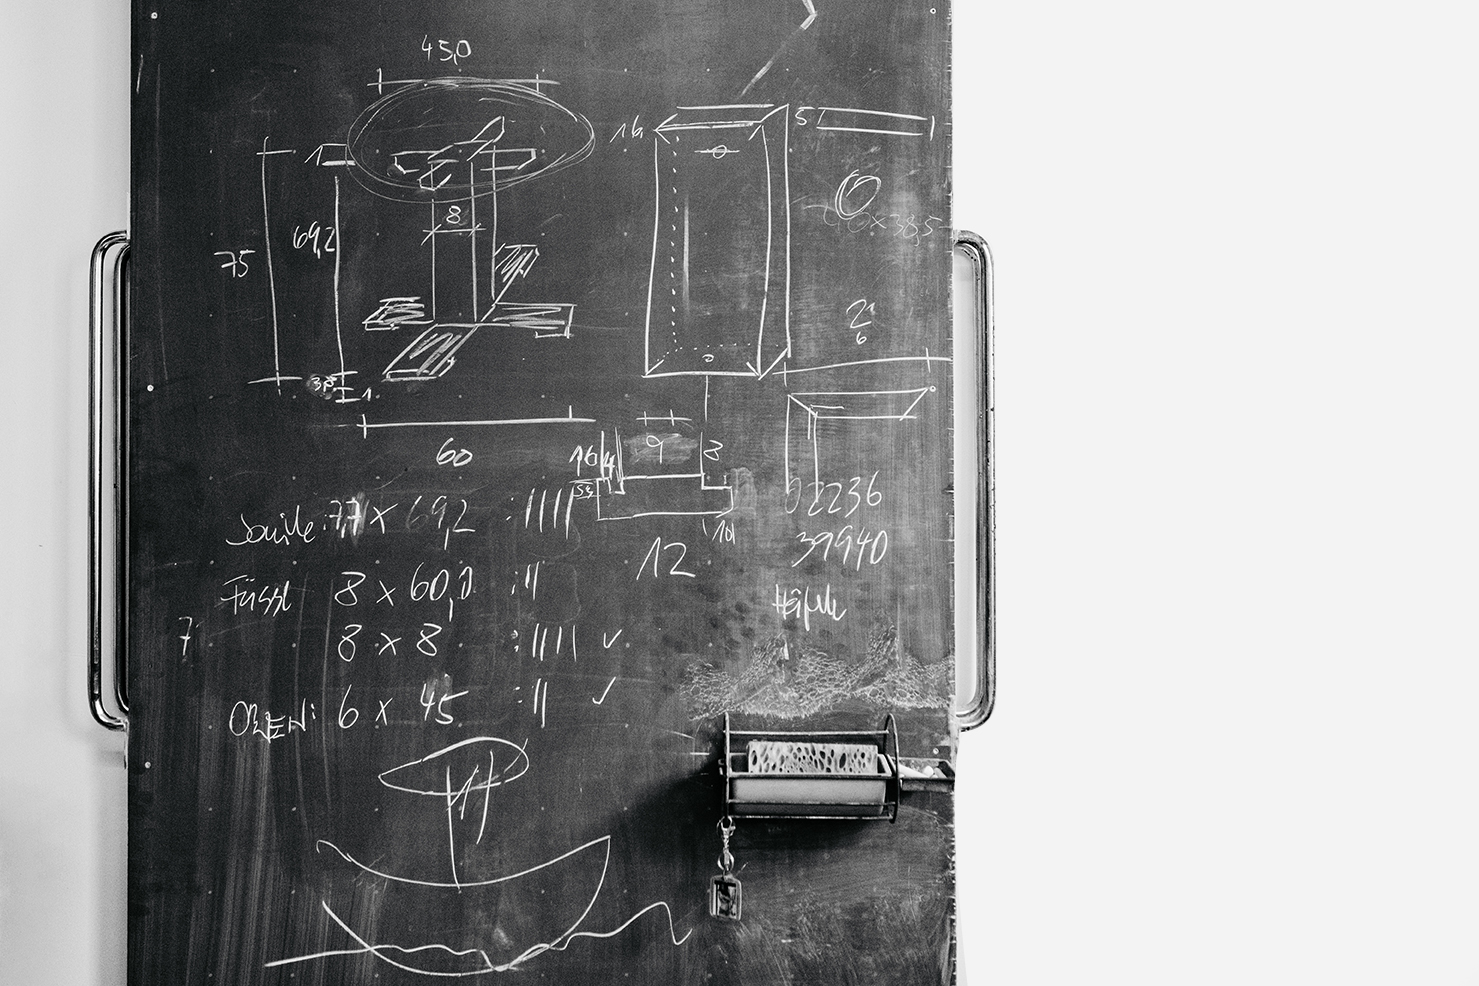 45,0
16
5
1
8
69,2
75
60x38,5
2
6
3,8
1
60
9
8
16
4
12
10
Säule: 7,7 x 69,2 : ||||
02236
39940
Häfele
Füssl 8 x 60,0 : ||
7
8 x 8 : |||| ✓
OBEN: 6 x 45 : || ✓